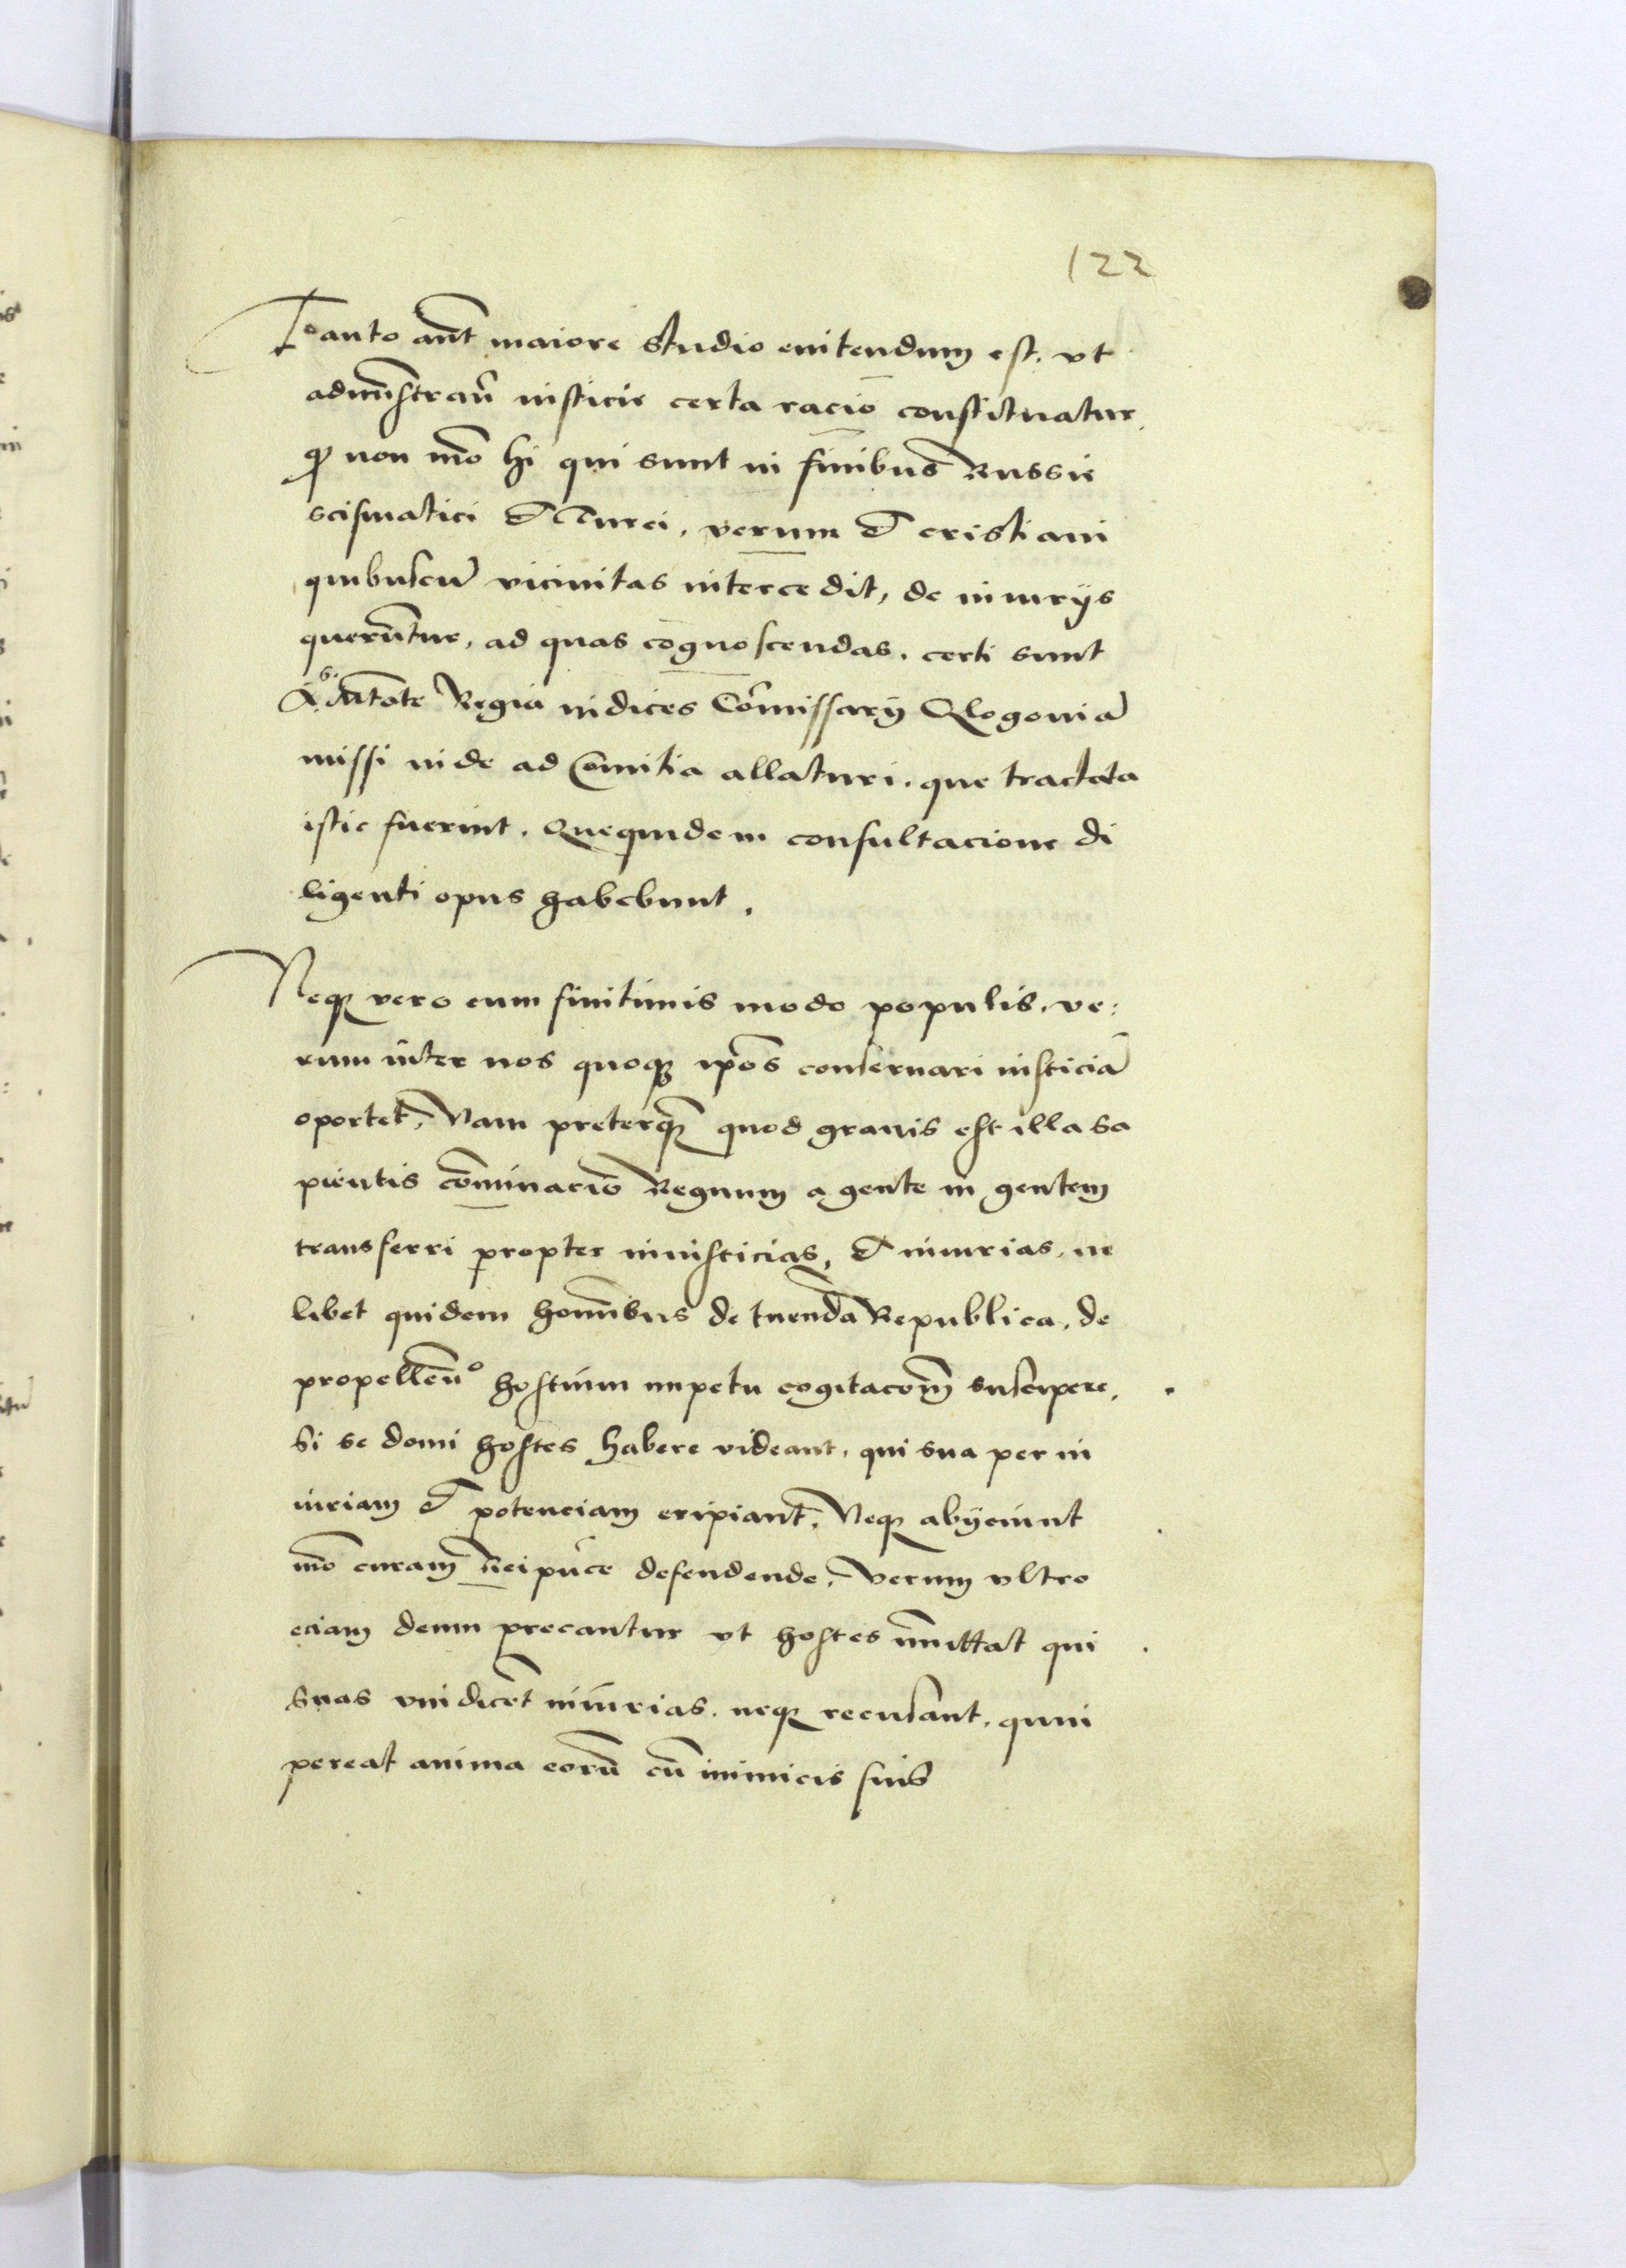 122
Tanto aūt maiore studio enitendum est, vt
admīstrān̄ iusticie certa racio constituatur,
ꝙ non mō hi qui sunt in finibus Russie
scismatici et Turci, verum et cristiani
quibuscū vicinitas intercedit, de iniurijs
querūtur, ad quas cognoscendas, certi sunt
A Mtāte Regia iudices Cōmissarij Glogouiā
missi inde ad Comitia allaturi, que tractata
istic fuerint. Quequidem consultacione di
ligenti opus habebunt,
Neqꝫ vero cum finitimis modo populis, ve:
rum inter nos quoqꝫ ipōs conseruari iusticiā
oportet, Nam preterqꝫ quod grauis est illa sa
pientis cōminacio Regnum a gente in gentem
transferri propter iniusticias, et iniurias, ne
libet quidem homībus de tuenda Republica, de
propellēn° hostium impetu cogitacōm̄ suscipere,
Si se domi hostes habere videant, qui sua per in
iuriam et potenciam eripiant, Neqꝫ abijciunt
mō curam Reipuce defendende, Verum vltro
eciam deum precantur vt hostes īmittat qui
suas vindicēt iniurias, neqꝫ recusant, quin
pereat anima eorū cū inimicis suis